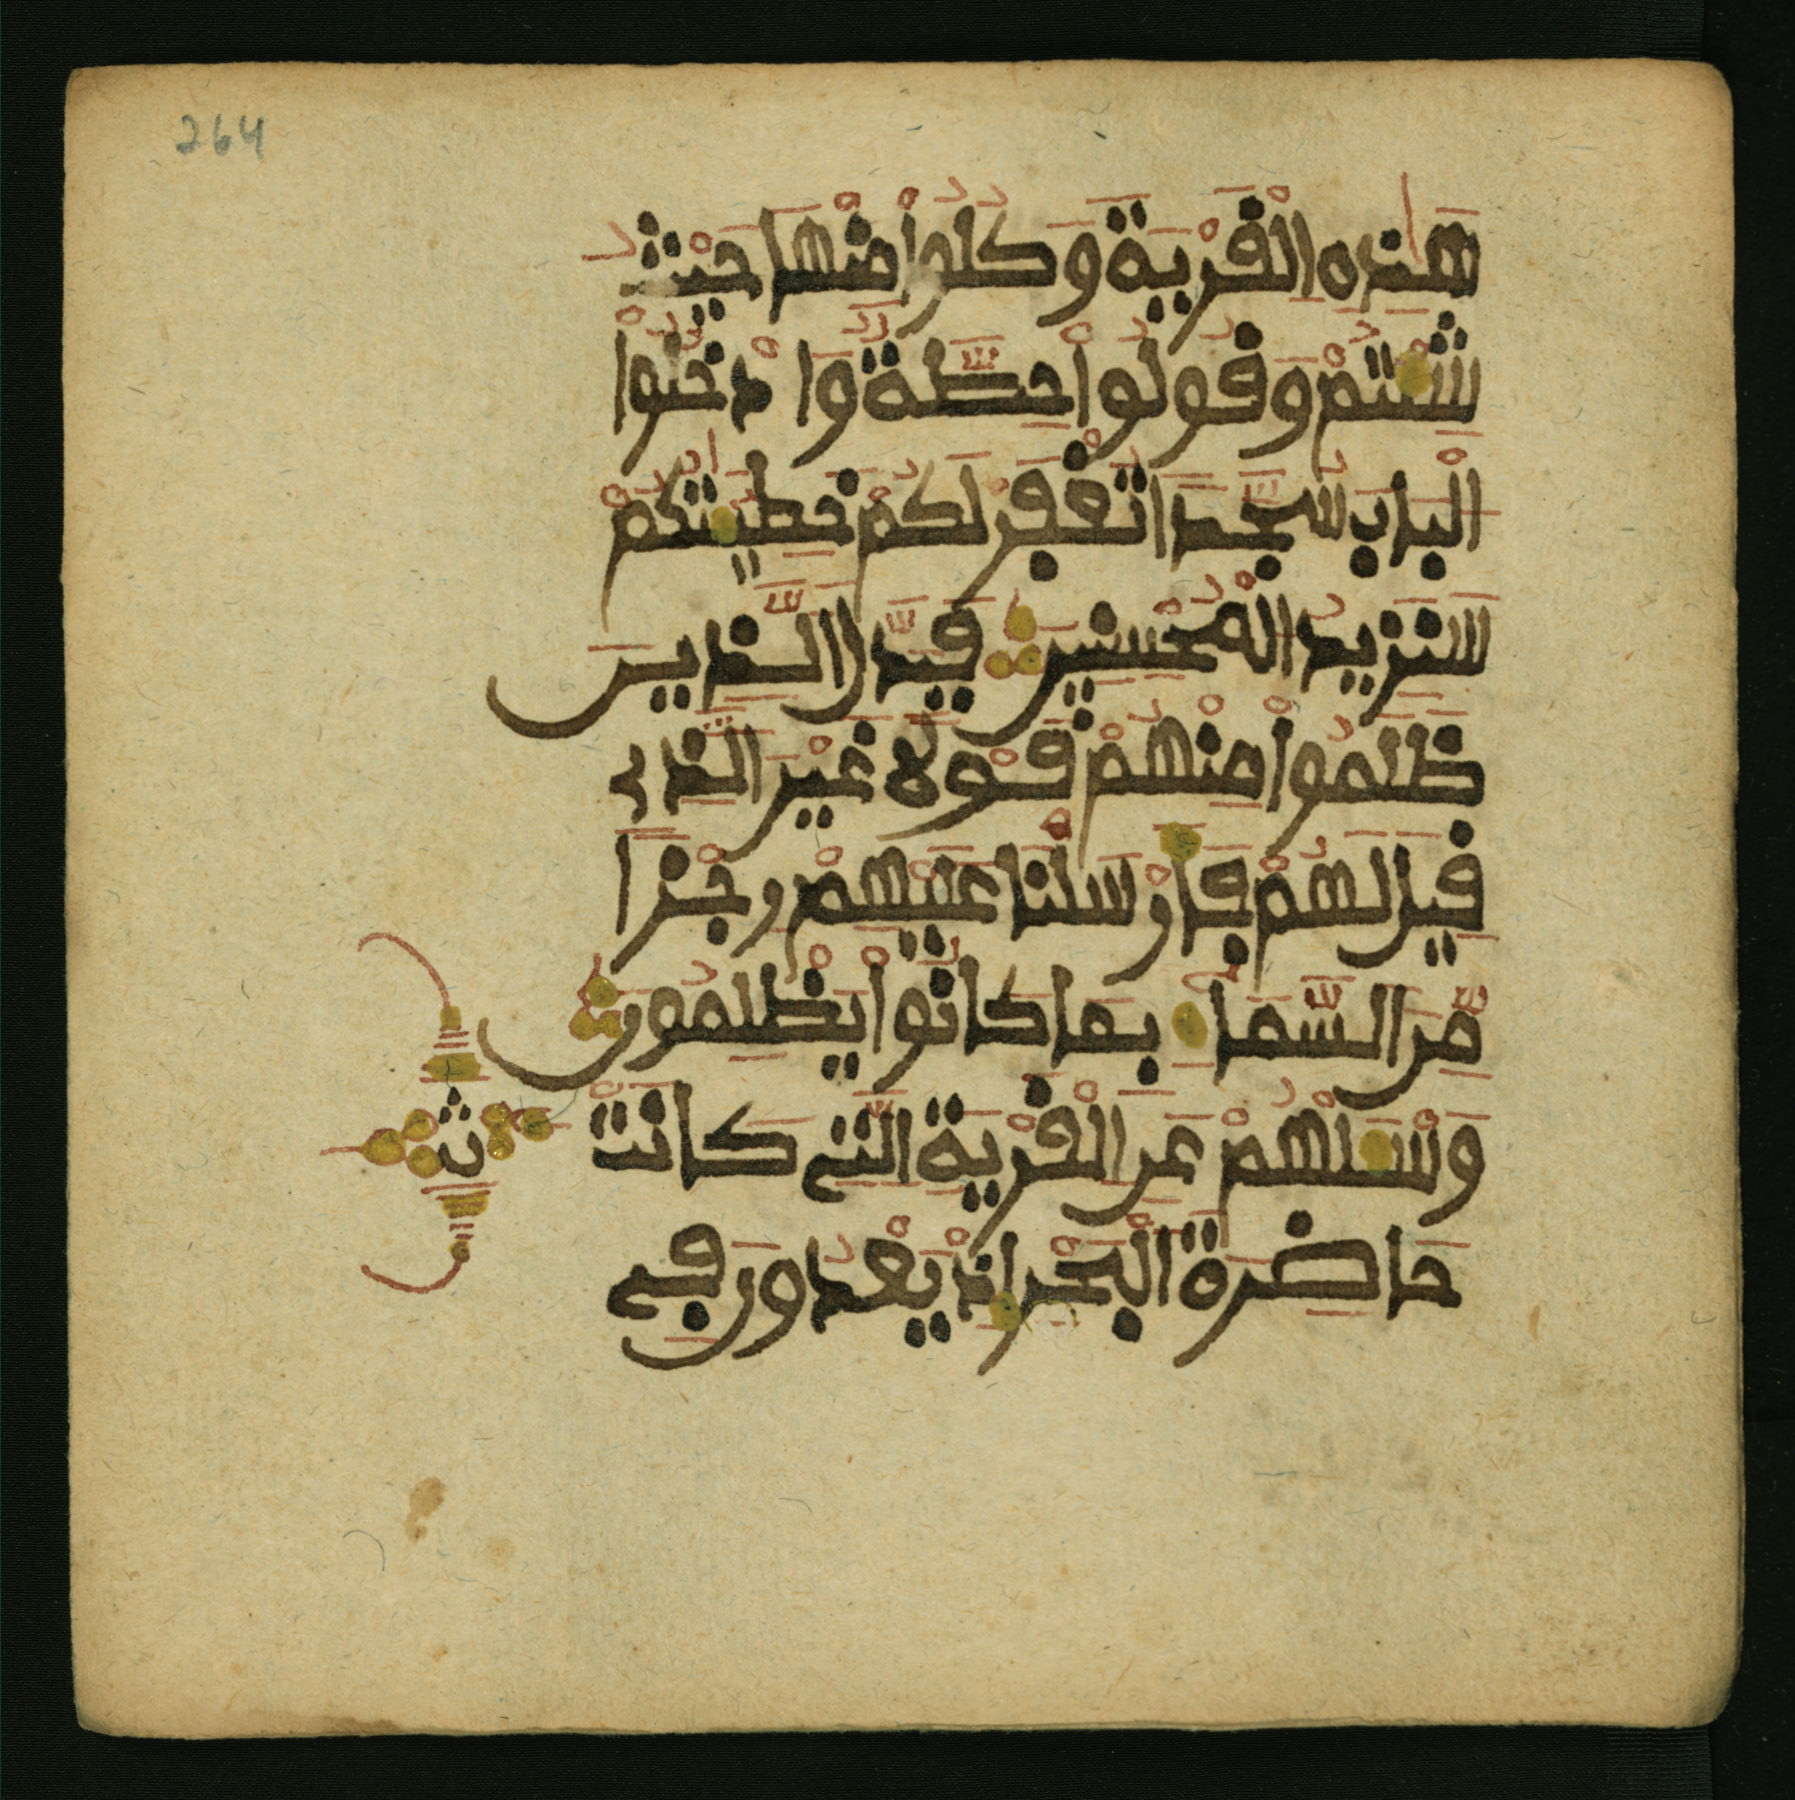 264
هَٰذِهِ اِ۬لْقَرْيَةَ وَكُلُواْ مِنْهَا حَيْثُ
شِئْتُمْ وَقُولُواْ حِطَّةٌ وَادْخُلُواْ
الْبَابَ سُجَّداً تُغْفَرْ لَكُمْ خَطِيـَٰٔتُكُمْ
سَنَزِيدُ الْمُحْسِنِينَ فَبَدَّلَ الَّذِينَ
ظَلَمُواْ مِنْهُمْ قَوْلًا غَيْرَ الَّذِي
قِيلَ لَهُمْ فَأَرْسَلْنَا عَلَيْهِمْ رِجْزاً
مِّنَ السَّمَاءِ بِمَا كَانُواْ يَظْلِمُونَ
وَسْـَٔلْهُمْ عَنِ الْقَرْيَةِ الَّتِي كَانَتْ
حَاضِرَةَ الْبَحْرِ إِذْ يَعْدُونَ فِي
ث